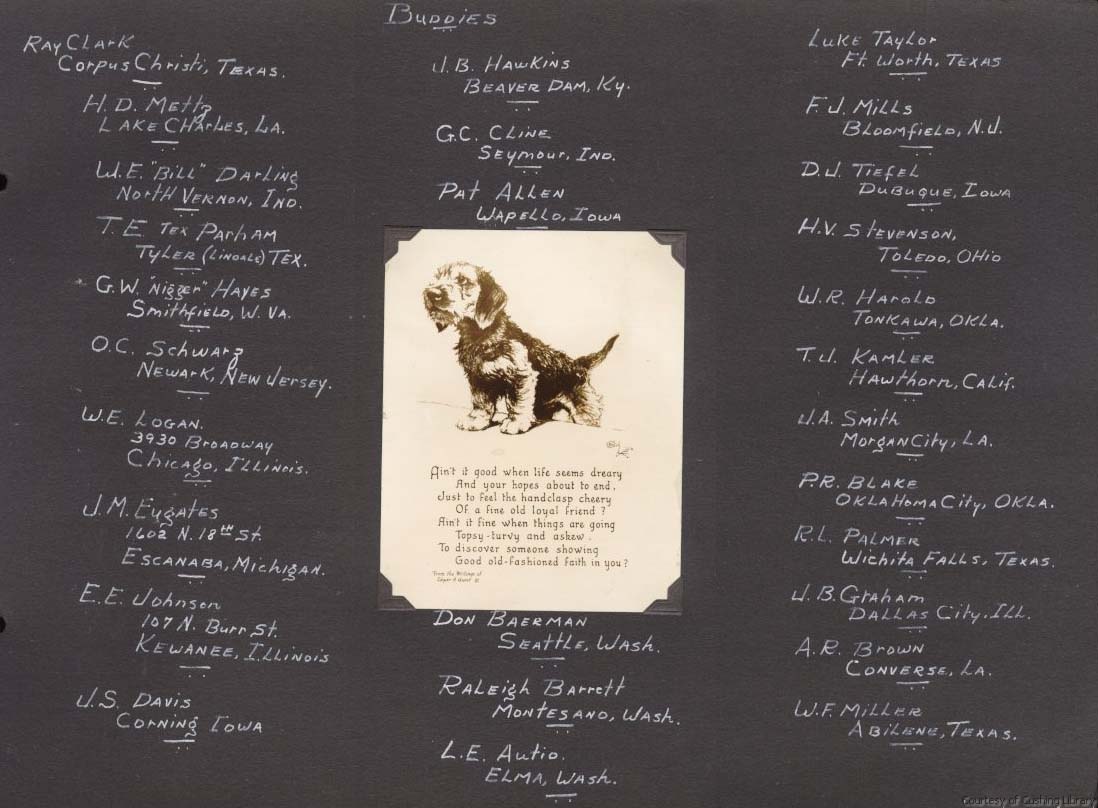 Buddies
Ray Clark
Corpus Christi, Texas.
H. D. Mettz
Lake Charles, La.
W. E. "Bill" Darling
North Vernon, Ind.
T. E Tex Parham
Tyler (Lindale) Tex.
* G. W. "Nigger" Hayes
Smithfield, W. Va.
O. C. Schwarz
Newark, New Jersey.
W. E. Logan.
3930 Broadway
Chicago, Illinois.
J. M. Eygates
1602 N. 18th St.
Escanaba, Michigan.
E. E. Johnson
107 N. Burr St.
Kewanee, Illinois
J. S. Davis
Corning Iowa
J. B. Hawkins
Beaver Dam, Ky.
G. C. Cline
Seymour, Ind.
Pat Allen
Wapello, Iowa
Ain't it good when life seems dreary
And your hopes about to end,
Just to feel the handclasp cheery
Of a fine old loyal friend?
Ain't it fine when things are going
Topsy-turvy and askew.
To discover someone showing
Good old-fashioned faith in you?
From the Writings of
Edgar A Guest
Don Baerman
Seattle, Wash.
Raleigh Barrett
Montesano, Wash.
L. E. Autio.
Elma, Wash.
Luke Taylor
Ft. Worth, Texas
F. J. Mills
Bloomfield, N. J.
D. J. Tiefel
Dubuque, Iowa
H. V. Stevenson,
Toledo, Ohio
W. R. Harold
Tonkawa, Okla.
T. J. Kamler
Hawthorn, Calif.
J. A. Smith
Morgan City, La.
P. R. Blake
Oklahoma City, Okla.
R. L. Palmer
Wichita Falls, Texas.
J. B. Graham
Dallas City, Ill.
A. R. Brown
Converse, La.
W. F. Miller
Abilene, Texas.
Courtesy of Cushing Library